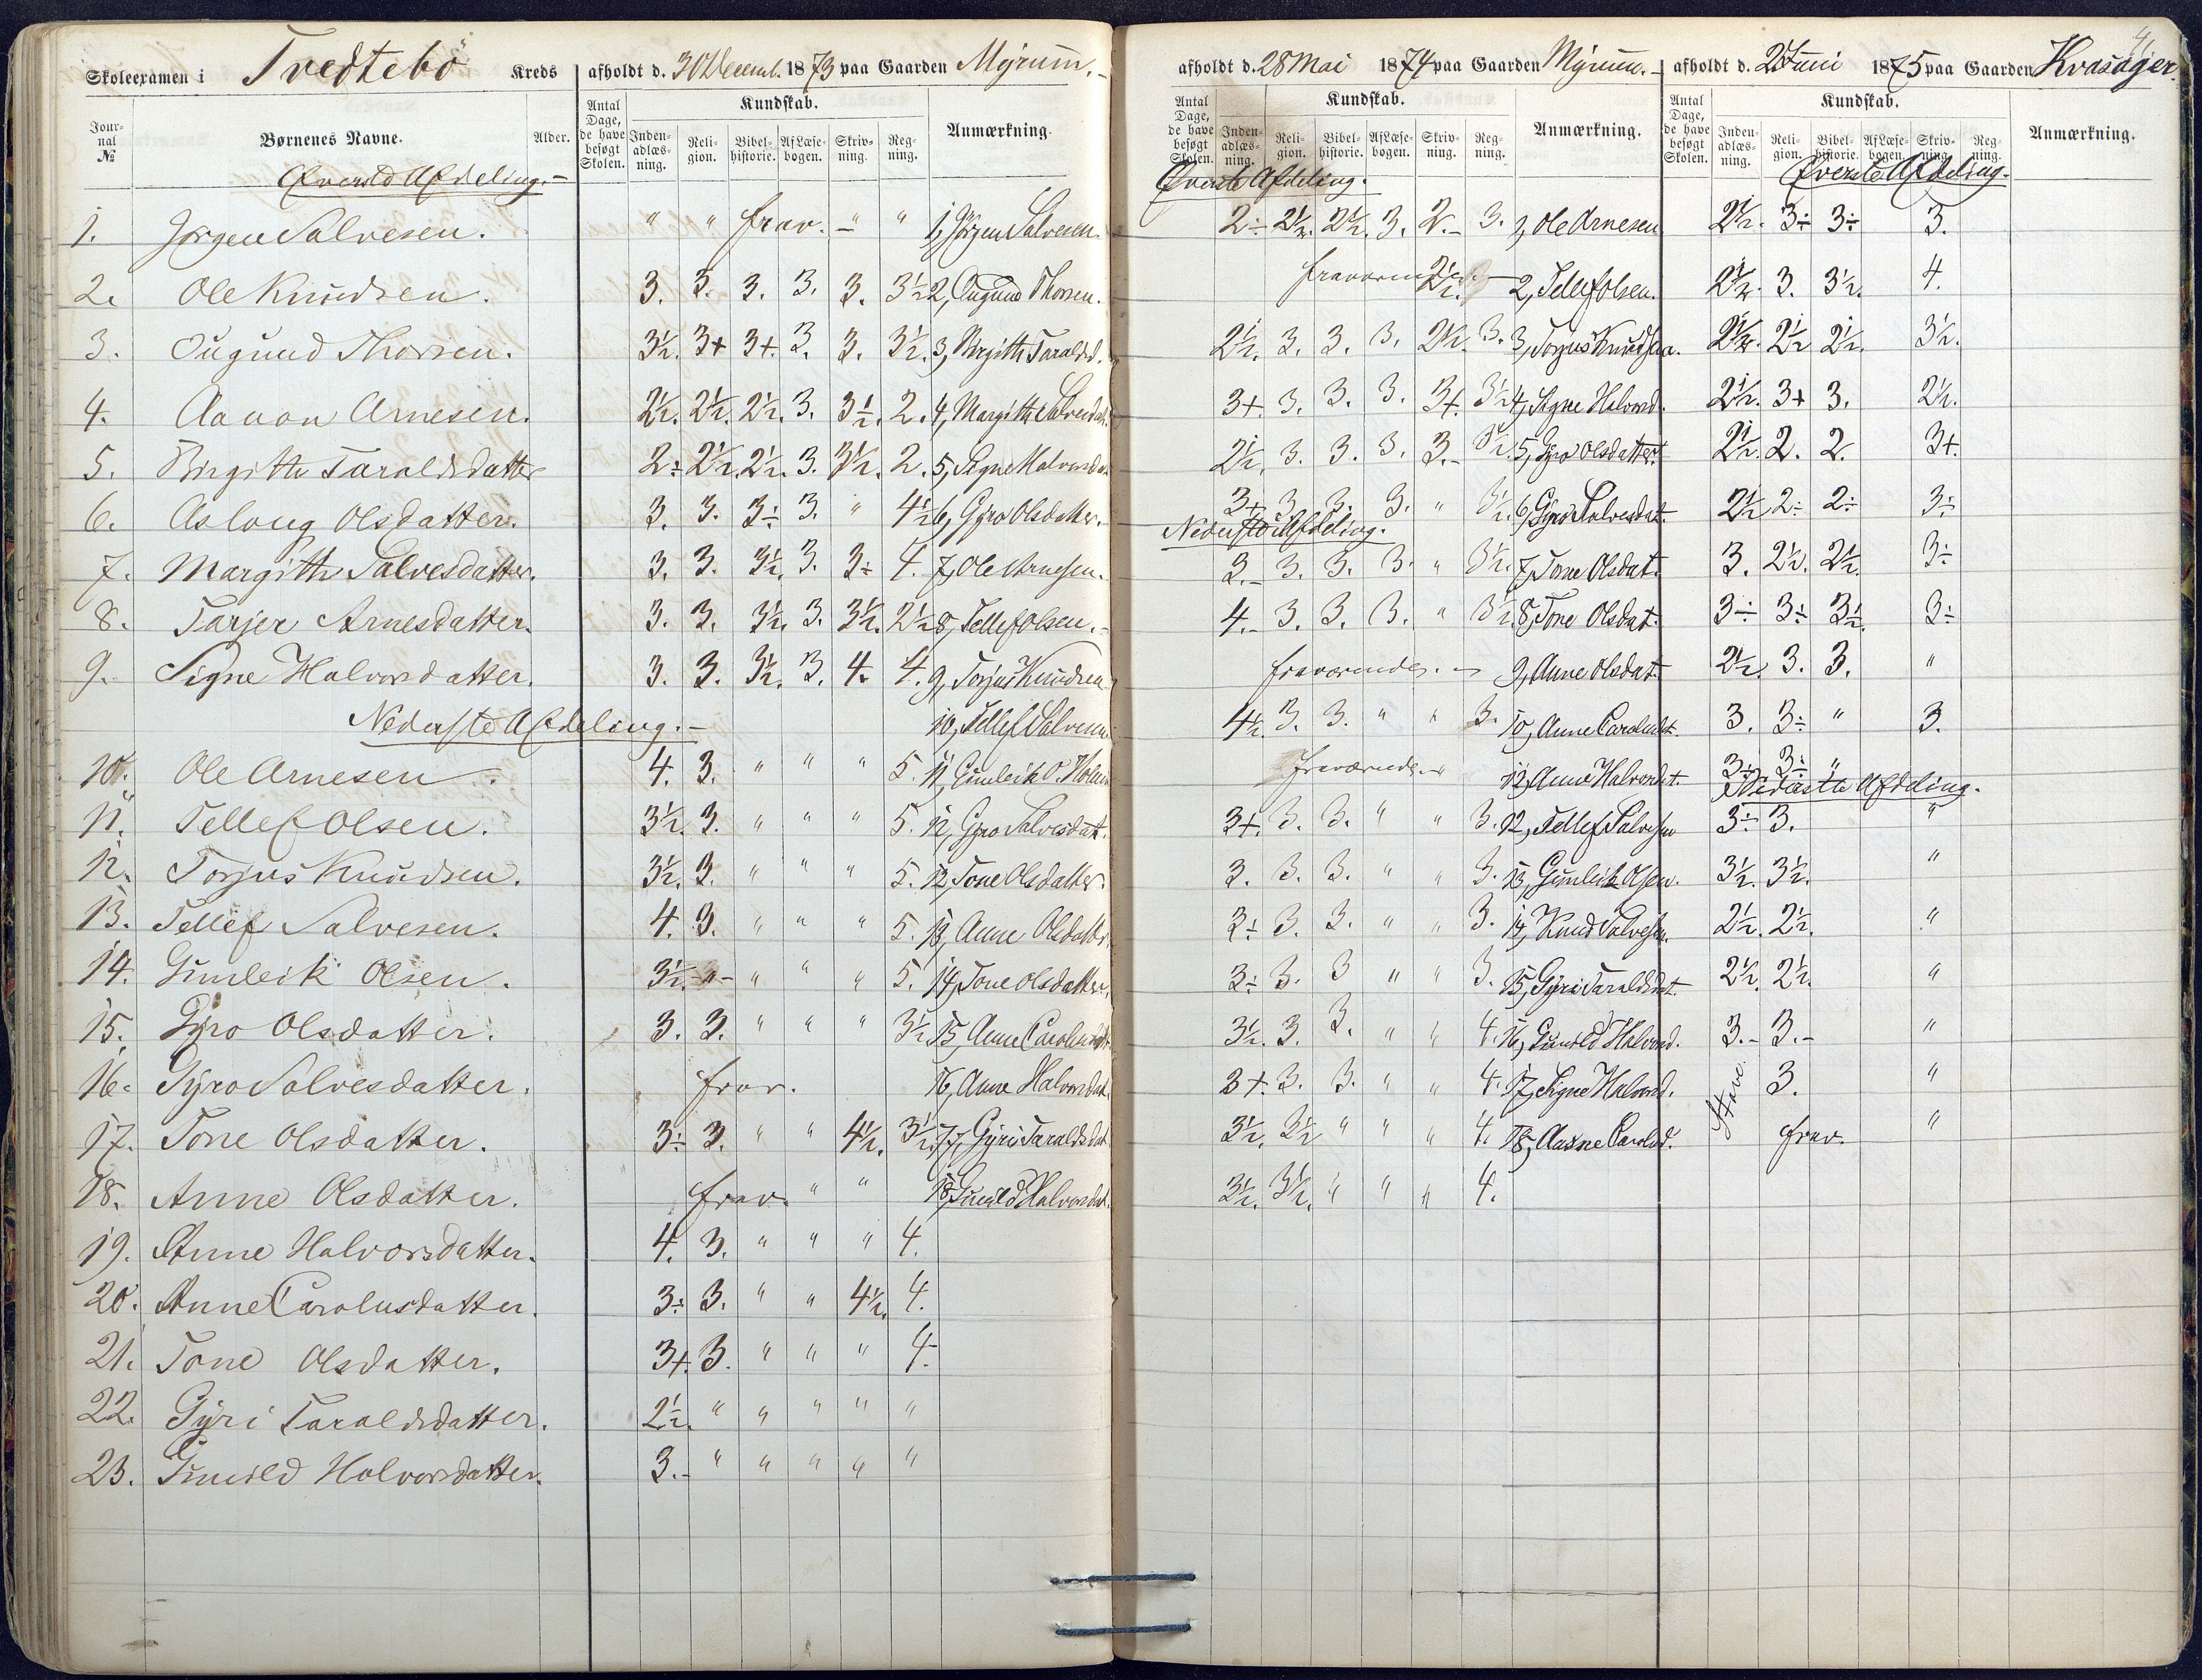 Skoleexamen i Tvedtebö Kreds afholdt d. 30 Decemb. 1873 paa Gaarden Myrum.
Jour-nal № Børnenes Navne. Alder. Antal Dage, de have besøgt Skolen. Kundskab. Inden-adlæs-ning. Reli-gion. Bibel-historie. Af Læse-bogen. Skriv-ning. Reg-ning. Anmærkning.
Øverste Afdeling.
1. Jörgen Salvesen. " " frav. - " 1, Jörgen Salvesen.
2. Ole Knudsen. 3. 3. 3. 3. 3. 3½ 2, Augund Thorsen.
3. Augund Thorsen. 3½. 3+ 3+. 3. 3. 3½. 3, Birgitte Taraldsd.
4. Aanon Arnesen. 2½. 2½. 2½. 3. 3½. 2. 4, Margithe Salvesdat.
5. Birgitte Taraldsdatter 2÷ 2½. 2½. 3. 3½. 2. 5, Signe Halvorsdat.
6. Aslaug Olsdatter. 3. 3. 3÷ 3. " 4½ 6, Gyro Olsdatter.
7. Margithe Salvesdatter. 3. 3. 3½. 3. 3÷ 4. 7, Ole Arnesen.
8. Tarjer Arnesdatter. 3. 3. 3½. 3. 3½. 2½ 8, Tellef Olsen.
9. Signe Halvorsdatter. 3. 3. 3½. 3. 4. 4. 9, Torjus Knudsen
Nederste Afdeling. 10, Tellef Salvesen
10. Ole Arnesen. 4. 3. " " " 5. 11, Gunleik O.
11. Tellef Olsen. 3½. 3. " " " 5. 12, Gyro Salvesdat.
12. Torjus Knudsen. 3½. 3. " " " 5. 12, Tone Olsdatter.
13. Tellef Salvesen. 4. 3. " " " 5. 13, Anne Olsdatter
14. Gunleik Olsen. 3½. " " " " 5. 14, Tone Olsdatter,
15. Gyro Olsdatter. 3. 3. " " " 3½ 15, Anne Carolusdt.
16. Gyro Salvesdatter. frav. 16, Anne Halvorsdat.
17. Tone Olsdatter. 3÷ 3. " " 4½. 3½. 17, Gyri Taraldsdat
18. Anne Olsdatter. frav. " " 18, Gunild Halvorsdat.
19. Anne Halvorsdatter. 4. 3. " " " 4.
20. Anne Carolusdatter. 3÷ 3. " " 4½. 4.
21. Tone Olsdatter. 3+. 3. " " " 4.
22. Gyri Taraldsdatter. 2½. " " " " "
23. Gunild Halvorsdatter. 3. " " " " "
afholdt d. 28 Mai 1874 paa Gaarden Myrum. afholdt d. 2 Juni 1875 paa Gaarden Kvasager
Antal Dage, de have besøgt Skolen. Kundskab. Inden-adlæs-ning. Reli-gion. Bibel-historie. Af Læse-bogen. Skriv-ning. Reg-ning. Anmærkning. Antal Dage, de have besøgt Skolen. Kundskab. Inden-adlæs-ning. Reli-gion. Bibel-historie. Af Læse-bogen. Skriv-ning. Reg-ning. Anmærkning.
Øverste Afdeling. Øverste Afdeling.
2÷ 2½. 2½. 3. 2. 3. 1, Ole Arnesen 2½. 3÷ 3÷ 3.
fraværende 2½. 2, Tellef Olsen. 2½. 3. 3½. 4.
2½. 3. 3. 3. 2½. 3. 3, Torjus Knudsen. 2½. 2½ 2½. 3½.
3+. 3. 3. 3. 3+. 3½ 4, Signe Halvorsd. 2½. 3+ 3. 2½.
2½. 3. 3. 3. 3. 3½. 5, Gyro Olsdatter. 2½. 2. 2. 3+.
3+ 3. 3. 3. " 3½. 6, Gyro Salvesdat. 2½ 2÷ 2÷ 3÷
Nederste Afdeling.
3. 3. 3. 3. " 3½. 7, Tone Olsdat. 3. 2½. 2½. 3÷
4. 3. 3. 3. " 3½. 8, Tone Olsdat. 3÷ 3÷ 3½. 3÷
fraværende. 9, Anne Olsdat. 2½. 3. 3. "
4½. 3. 3. " " 3. 10, Anne Carolusdt. 3. 3÷ " 3.
fraværende 12, Anne Halvorsdt. 3÷ 3÷ "
Nederste Afdeling.
3+. 3. 3. " " 3. 12, Tellef Salvesen 3÷ 3. "
3. 3. 3. " " 3. 13, Gunleik Olsen. 3½. 3½. "
3÷ 3. 3. " " 3. 14, Knud Salvesen. 2½. 2½. "
3÷ 3. 3 " " 3. 15, Gyri Taraldsdat. 2½. 2½. "
3½. 3. 3. " " 4. 16, Gunild Halvorsd. 3. 3. "
3+. 3. 3. " " 4. 17, Signe Halvorsd. Stave 3. "
3½. 3½ " " " 4. 18, Aasne Carolusd. frav. "
3½. 3½. " " " 4.